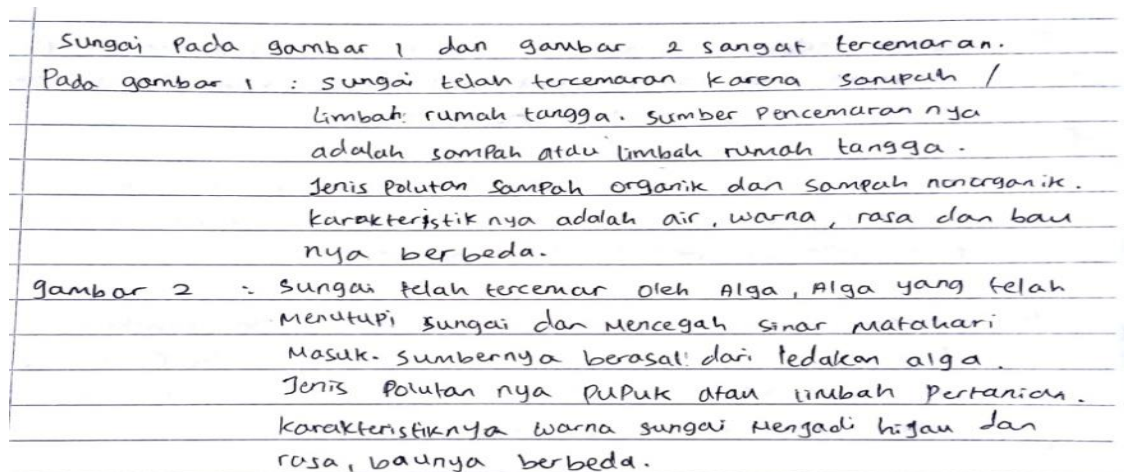 Sungai Pada gambar 1 dan gambar 2 sangat tercemaran.
Pada gambar 1 : sungai telah tercemaran karena sampah /
Limbah rumah tangga. sumber Pencemaran nya
adalah sampah atau limbah rumah tangga.
Jenis Polutan Sampah organik dan sampah nonorganik.
karakteristik nya adalah air, warna, rasa dan bau
nya berbeda.
gambar 2 : Sungai telah tercemar oleh Alga, Alga yang telah
Menutupi sungai dan Mencegah sinar Matahari
Masuk. Sumbernya berasal dari ledakan alga.
Jenis Polutan nya PuPuk atau limbah Pertanian.
karakteristiknya warna sungai Menjadi hijau dan
rasa, baunya berbeda.